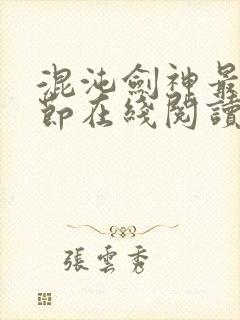 混沌劍神最
節在綫閱讀
張雲秀